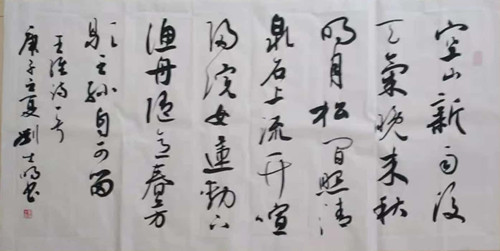 空山新雨後
天氣晚来秋
明月松間照清
泉石上流竹喧
歸浣女蓮動下
漁舟隨意春芳
歇王孫自可留
王維詩一首
庚子立夏劉士書